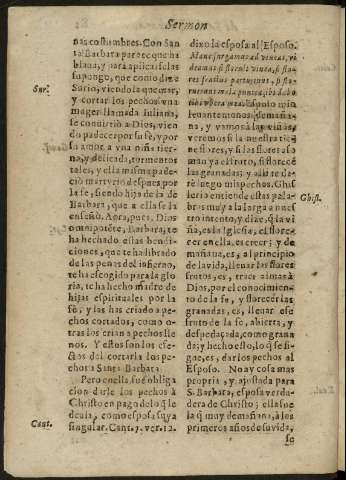 Sermon
nas costumbres. Con San
ta Barbara parece que ha
blaua, y para aplicarselas
supongo, que como dize
Surio, viendola quemar,
y cortar los pechos vna
muger llamada Iuliana,
se conuirtiò a Dios, vien
do padecer por su fè, y por
su amor a vna niña tier-
na, y delicada, tormentos
tales, y ella misma pade-
ciò martyrio despues por
la fe, siendo hija de la de
Barbara, que a ella se la
enseñò. Aora, pues, Dios
omnipotẽte, Barbara, te
ha hechado essas bendi-
ciones, que te ha librado
de las penas del infierno,
te ha escogido para la glo
ria, te ha hecho madre de
hijas espirituales por la
fè, y las has criado a pe-
chos cortados, como o-
tras los crian a pechos lle
nos. Y estos son los efe-
ctos del cortarla los pe-
chos a Santa Barbara.
Pero en ella, fue obliga
cion darle los pechos à
Christo en pago de lo q̃ le
deuia, como esposa suya
singular. Cant. 7. ver. 12.
Sur.
Cant.
dixo la esposa al Esposo.
Mane surgamus ad vineas, vi
deamus si floruit vinea, si flo-
res fructus parturiunt, si flo-
ruerunt mala punica, ibi dabo
tibi vbera mea. Esposo mio
leuantemonos de maña-
na, y vamos a las viñas,
veremos si la nuestra tie
ne flores, y si las flores aso
man ya el fruto, si florecẽ
las granadas; y alli te da-
rè luego mis pechos. Ghis
lerio entiende estas pala
bras muy a la larga a nues
tro intento, y dize, q̃ la vi
ña, es la Iglesia, el flore-
cer en ella, es creer; y de
mañana, es, al principio
de la vida, llenar las flores
frutos, es, traer almas à
Dios, por el conocimien-
to de la fe, y florecer las
granadas, es, llenar ese
fruto de la fe, abierta, y
despedaçada, como grana
da; y hecho esto, lo q̃ se si-
gue, es, dar los pechos al
Esposo. No ay cosa mas
propria, y ajustada para
S. Barbara, esposa verda-
dera de Christo; ella fue
la q̃ muy de mañana, à los
primeros años de su vida,
Ghisl.
se